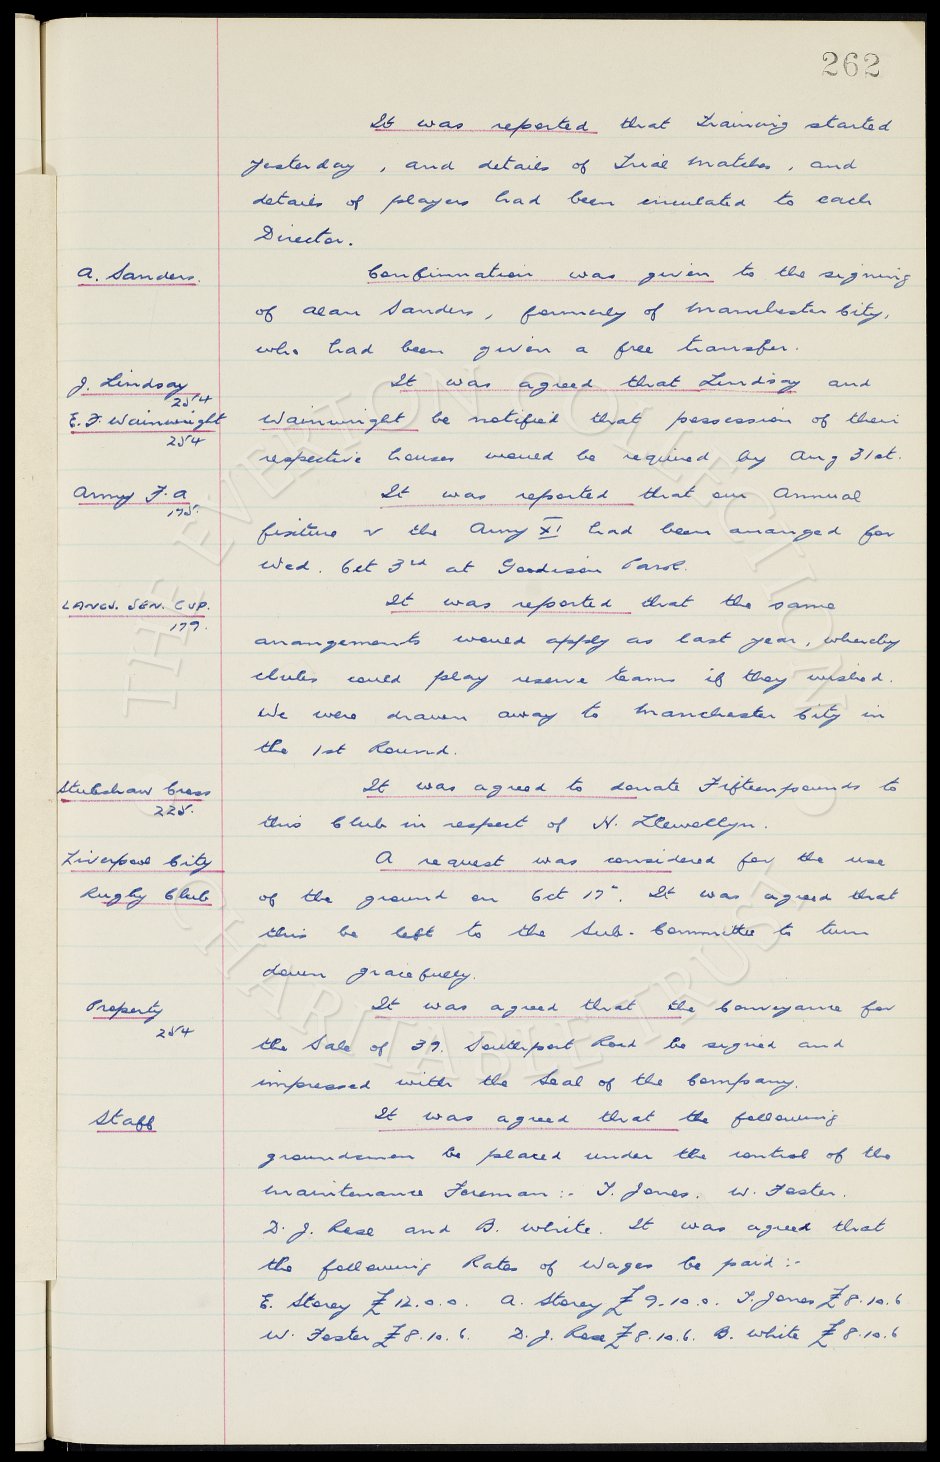 262
It was reported that Training started
yesterday, and details of Trial Matches, and
details of players had been circulated to each
Director.
A. Sanders.
Confirmation was given to the signing
of Alan Sanders, formerly of Manchester City,
who had been given a free transfer.
J. Lindsay
254
It was agreed that Lindsay and
E. F. Wainwright
254
Wainwright be notified that possession of their
respective houses would be required by Aug 31st.
Army F.A
175
It was reported that our Annual
fixture v the Army XI had been arranged for
Wed. Oct 3rd at Goodison Park.
LANCS. SEN. CUP.
179.
It was reported that the same
arrangements would apply as last year, whereby
clubs could play reserve teams if they wished.
We were drawn away to Manchester City in
the 1st Round.
Stubshaw Cross
225.
It was agreed to donate Fifteen pounds to
this Club in respect of H. Llewellyn.
Liverpool City
Rugby Club
A request was considered for the use
of the ground on Oct 17th. It was agreed that
this be left to the Sub-Committee to turn
down gracefully.
Property
254
It was agreed that the Conveyance for
the Sale of 39. Southport Road be signed and
impressed with the Seal of the Company.
Staff
It was agreed that the following
groundsmen be placed under the control of the
Maintenance Foreman:- T. Jones. W. Foster.
D. J. Rose and B. White. It was agreed that
the following Rates of Wages be paid:-
E. Storey £12.0.0. A. Storey £9.10.0. T. Jones £8.10.6
W. Foster £8.10.6. D. J. Rose £8.10.6. B. White £8.10.6
THE EVERTON COLLECTION
CHARITABLE TRUST